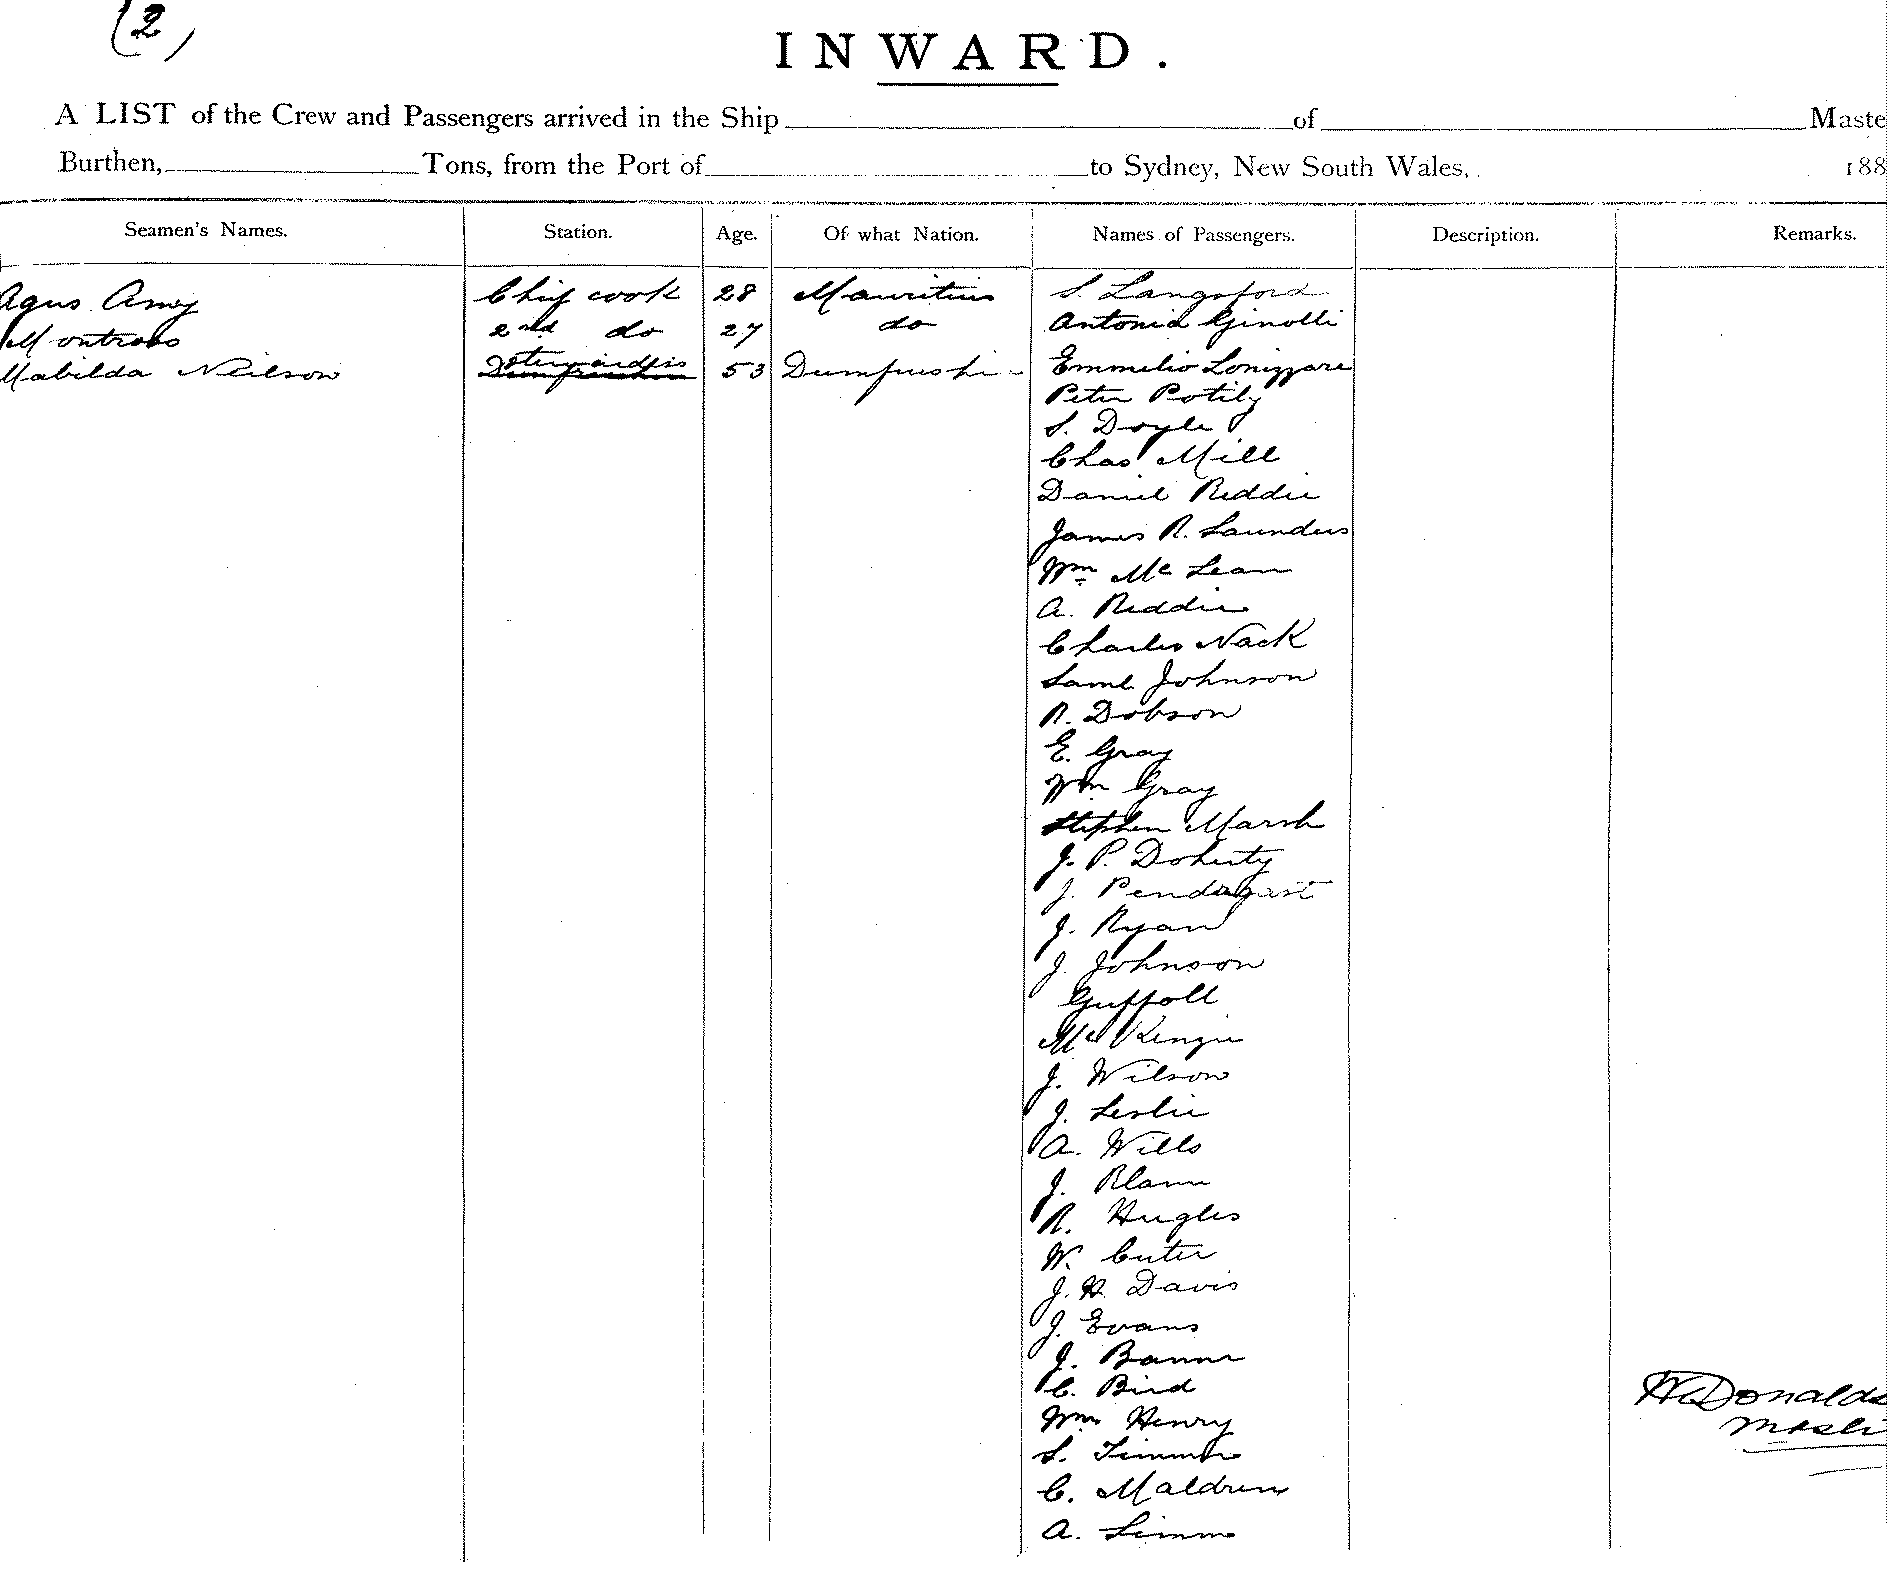 (2)
INWARD.
A LIST of the Crew and Passengers arrived in the Ship of Maste
Burthen, Tons, from the Port of to Sydney, New South Wales, 188
Seamen's Names. Station. Age. Of what Nation. Names of Passengers. Description. Remarks.
Agus Amy Chief cook 28 Mauritius S. Langsford
Montross 2nd do 27 do Antonia Ginolli
Mabilda Neilson 53 Emmelio
Peter
S. Doyle
Chas Mill
Daniel Reddie
James R. Saunders
Wm Mc Lean
A. Reddie
Charles Nack
Saml Johnson
R. Dobson
E. Gray
Wm Gray
Stephen Marsh
J. P. Doherty
J. Pendagast
J. Ryan
J. Johnson
Guffoll
Mc Kenzie
J. Wilson
J. Leslie
A. Wills
J.
R. Hughes
W. Cuter
J. H. Davis
J. Evans
J.
C. Bird
Wm Henry
S.
C. Maldren
A. Simms
Donalds